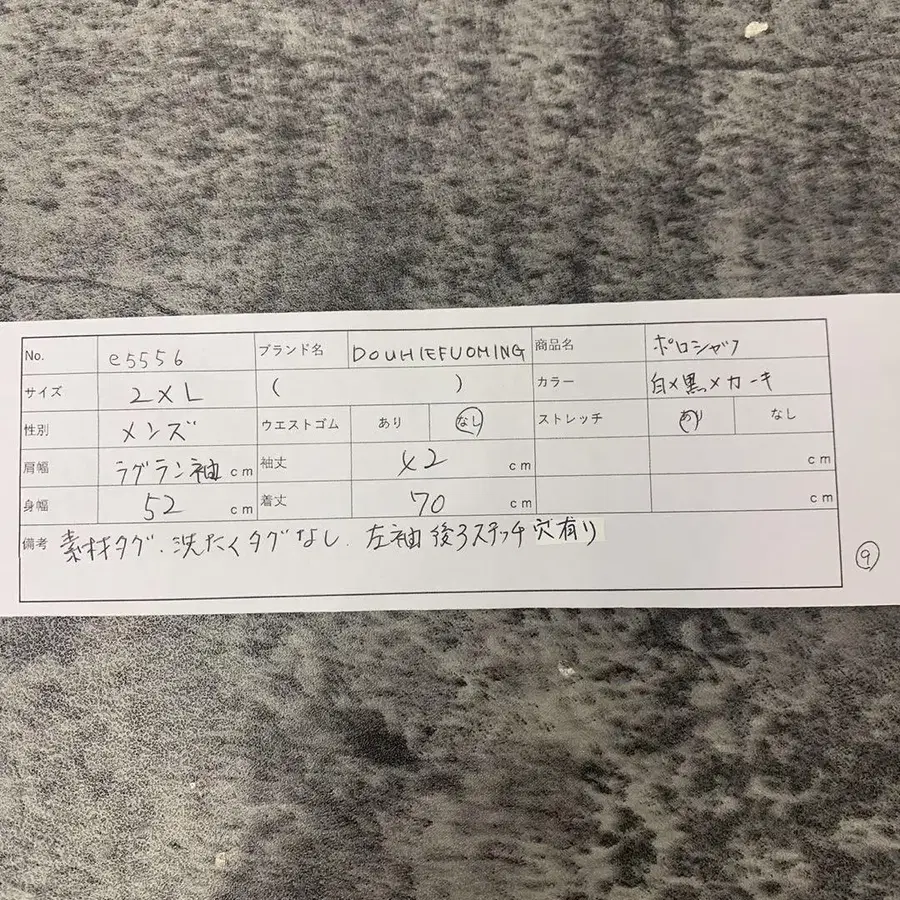 No. e5556 ブランド名 DOUHIEFUOMING 商品名 ポロシャツ
サイズ 2XL ( ) カラー 白×黒×カーキ
性別 メンズ ウエストゴム あり なし ストレッチ あり なし
肩幅 ラグラン袖 cm 袖丈 42 cm cm
身幅 52 cm 着丈 70 cm cm
備考 素材タグ.洗たくタグなし.左袖後ろステッチ穴有り
9